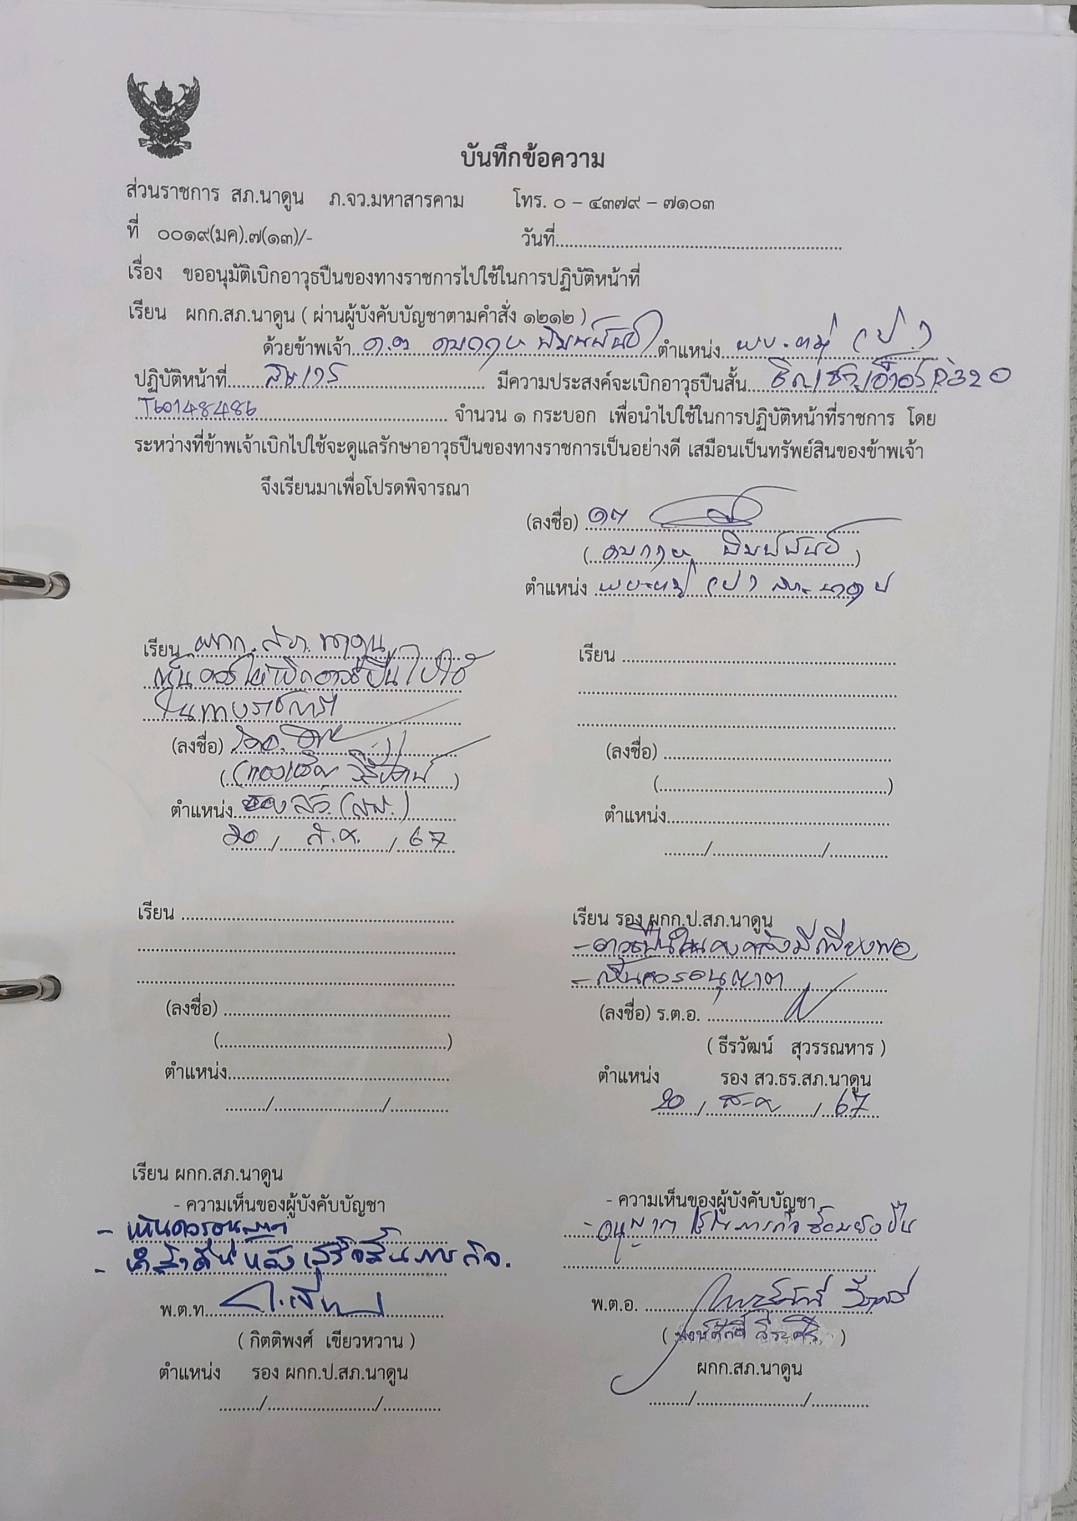 บันทึกข้อความ
ส่วนราชการ สภ.นาดูน ภ.จว.มหาสารคาม โทร. ๐ – ๔๓๗๙ – ๗๑๐๓
ที่ ๐๐๑๙(มค).๗(๑๓)/- วันที่
เรื่อง ขออนุมัติเบิกอาวุธปืนของทางราชการไปใช้ในการปฏิบัติหน้าที่
เรียน ผกก.สภ.นาดูน ( ผ่านผู้บังคับบัญชาตามคำสั่ง ๑๒๑๒ )
ด้วยข้าพเจ้า ตำแหน่ง ผบ.หมู่ (ป.)
ปฏิบัติหน้าที่ สายตรวจ มีความประสงค์จะเบิกอาวุธปืนสั้น P320
T60148486 จำนวน ๑ กระบอก เพื่อนำไปใช้ในการปฏิบัติหน้าที่ราชการ โดย
ระหว่างที่ข้าพเจ้าเบิกไปใช้จะดูแลรักษาอาวุธปืนของทางราชการเป็นอย่างดี เสมือนเป็นทรัพย์สินของข้าพเจ้า
จึงเรียนมาเพื่อโปรดพิจารณา
(ลงชื่อ)
( )
ตำแหน่ง ผบ.หมู่ (ป.) สภ.นาดูน
เรียน ผกก.สภ.นาดูน
เห็นควรให้เบิกอาวุธปืนไปใช้
ในทางราชการ
(ลงชื่อ)
( )
ตำแหน่ง รอง สว.(สส.)
๒๐ / ส.ค. / ๖๗
เรียน
(ลงชื่อ)
( )
ตำแหน่ง
/ /
เรียน
(ลงชื่อ)
( )
ตำแหน่ง
/ /
เรียน รอง ผกก.ป.สภ.นาดูน
- อาวุธปืนในคงคลังมีเพียงพอ
- เห็นควรอนุญาต
(ลงชื่อ) ร.ต.อ.
( ธีรวัฒน์ สุวรรณหาร )
ตำแหน่ง รอง สว.ธร.สภ.นาดูน
๒๐ / ส.ค. / ๖๗
เรียน ผกก.สภ.นาดูน
- ความเห็นของผู้บังคับบัญชา
- เห็นควรอนุญาต
- หลังเสร็จสิ้นภารกิจ.
พ.ต.ท.
( กิตติพงศ์ เขียวหวาน )
ตำแหน่ง รอง ผกก.ป.สภ.นาดูน
/ /
- ความเห็นของผู้บังคับบัญชา
- อนุญาต ซ้อมยิงปืน
พ.ต.อ.
( )
ผกก.สภ.นาดูน
/ /